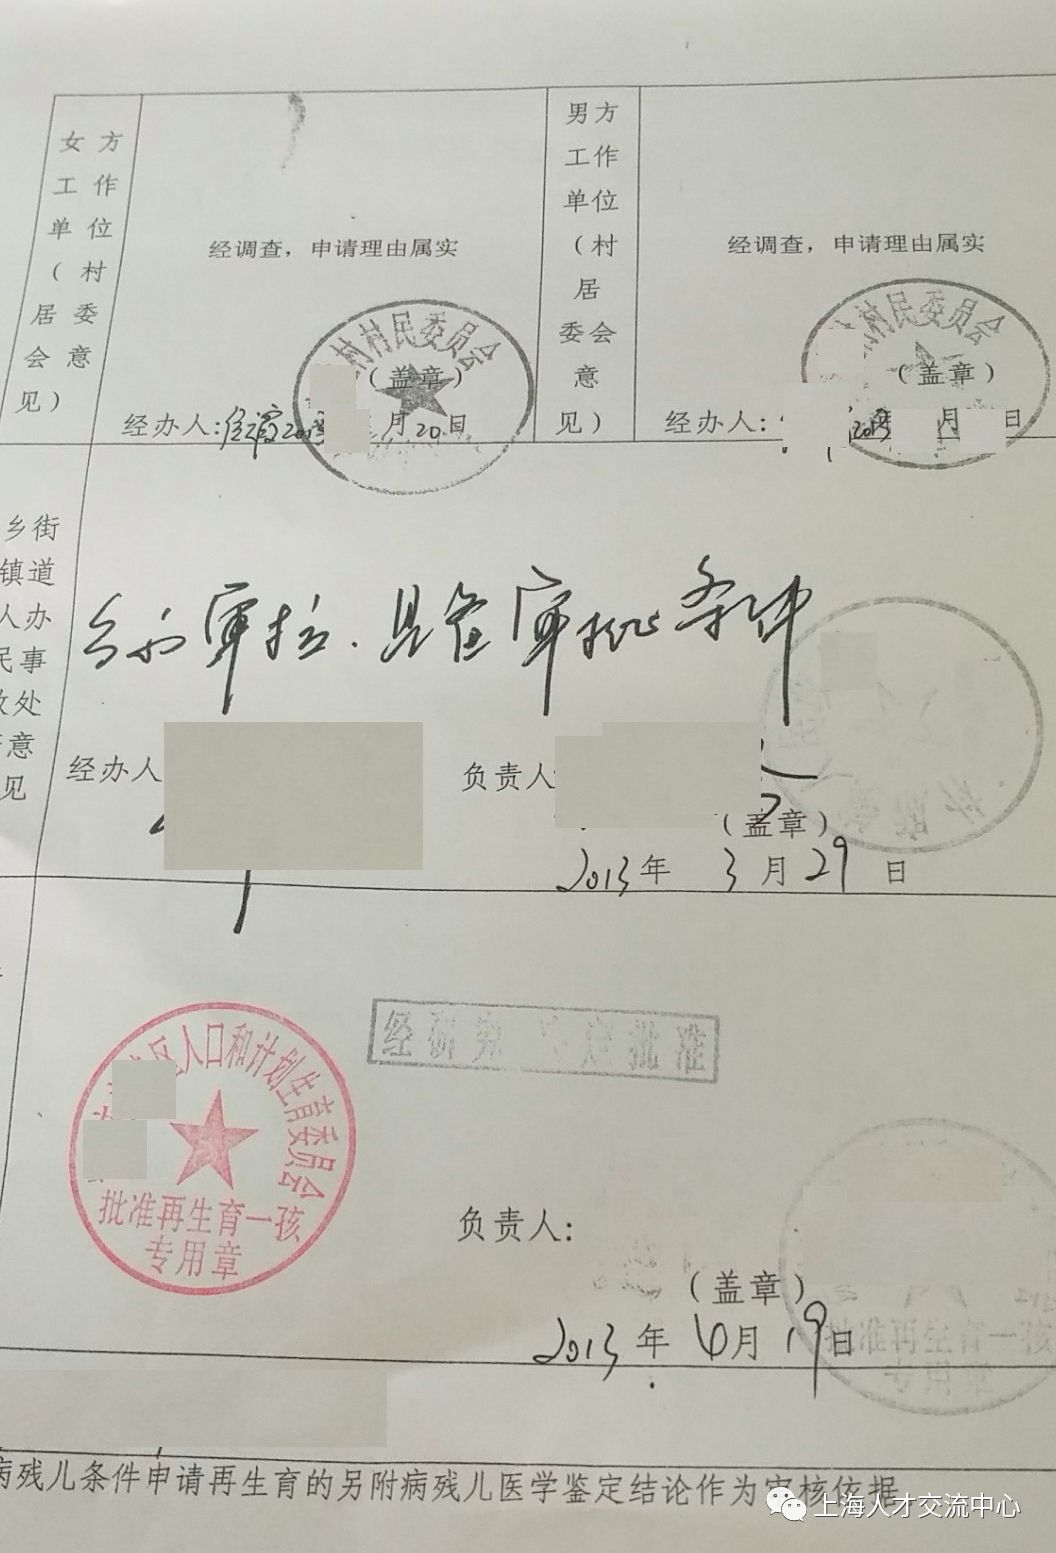 女方
工作
单位
（村
居委
会意
见）
经调查，申请理由属实
村村民委员会
（盖章）
经办人:
月20日
男方
工作
单位
（村
居
委会
意
见）
经调查，申请理由属实
村民委员会
（盖章）
经办人:
2013
月
日
乡街
镇道
人办
民事
处
意
见
审核.具备审批条件
经办人
负责人
（盖章）
2013年 3月29日
人口和计划生育委员会
批准再生育一孩
专用章
经研究 批准
负责人:
（盖章）
2013年 4月19日
批准再生育一孩
专用章
病残儿条件申请再生育的另附病残儿医学鉴定结论作为审核依据
上海人才交流中心